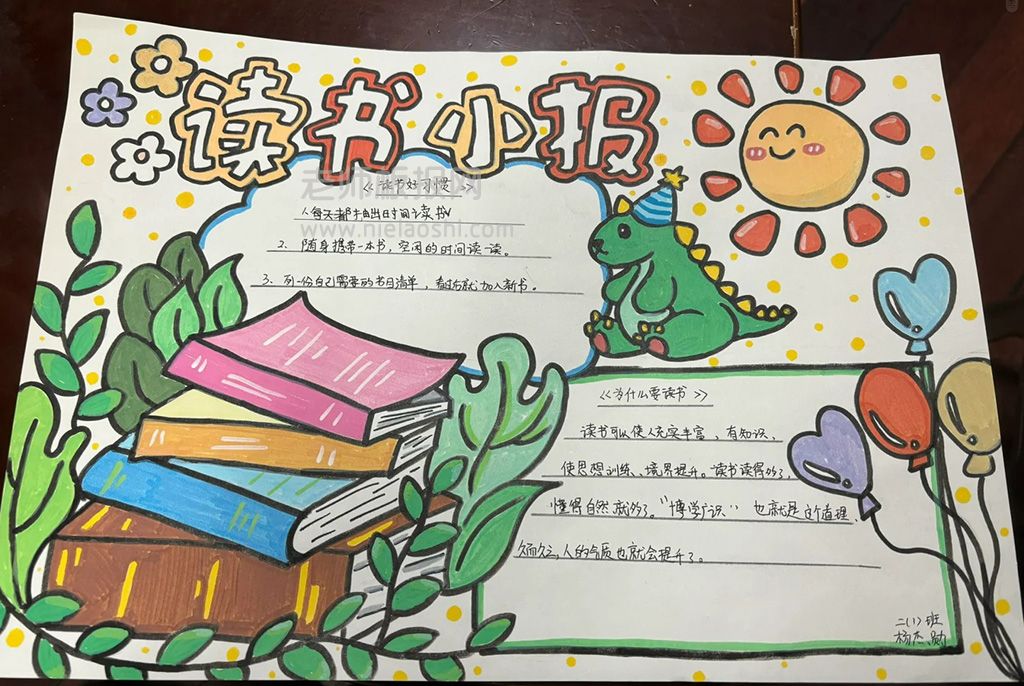 读书小报
老师画报网
www.njelaoshi.com
《读书好习惯》
1.每天都抽出时间读书
2、随身携带一本书，空闲的时间读一读。
3、列一份自己需要的书目清单，看过后就加入新书。
《为什么要读书》
读书可以使人充实丰富，有知识、
使思想训练、境界提升。读书读得多了，
懂得自然就多了。“博学广识”也就是这个道理，
久而久之，人的气质也就会提升了。
二(1)班
杨杰勋